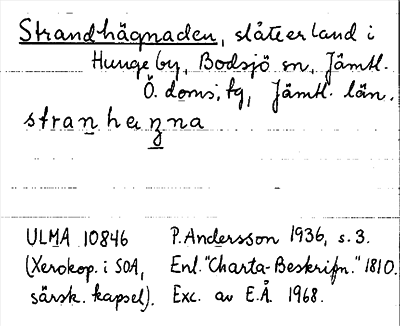 Strandhägnaden, slåtterland i
Hunge by, Bodsjö sn, Jämtl.
Ö. doms. tg, Jämtl. län.
stranhæzna
ULMA 10846 P. Andersson 1936, s. 3.
(Xerokop. i SOA, Enl. "Charta-Beskrifn." 1810.
särsk. kapsel). Exc. av E.Å. 1968.